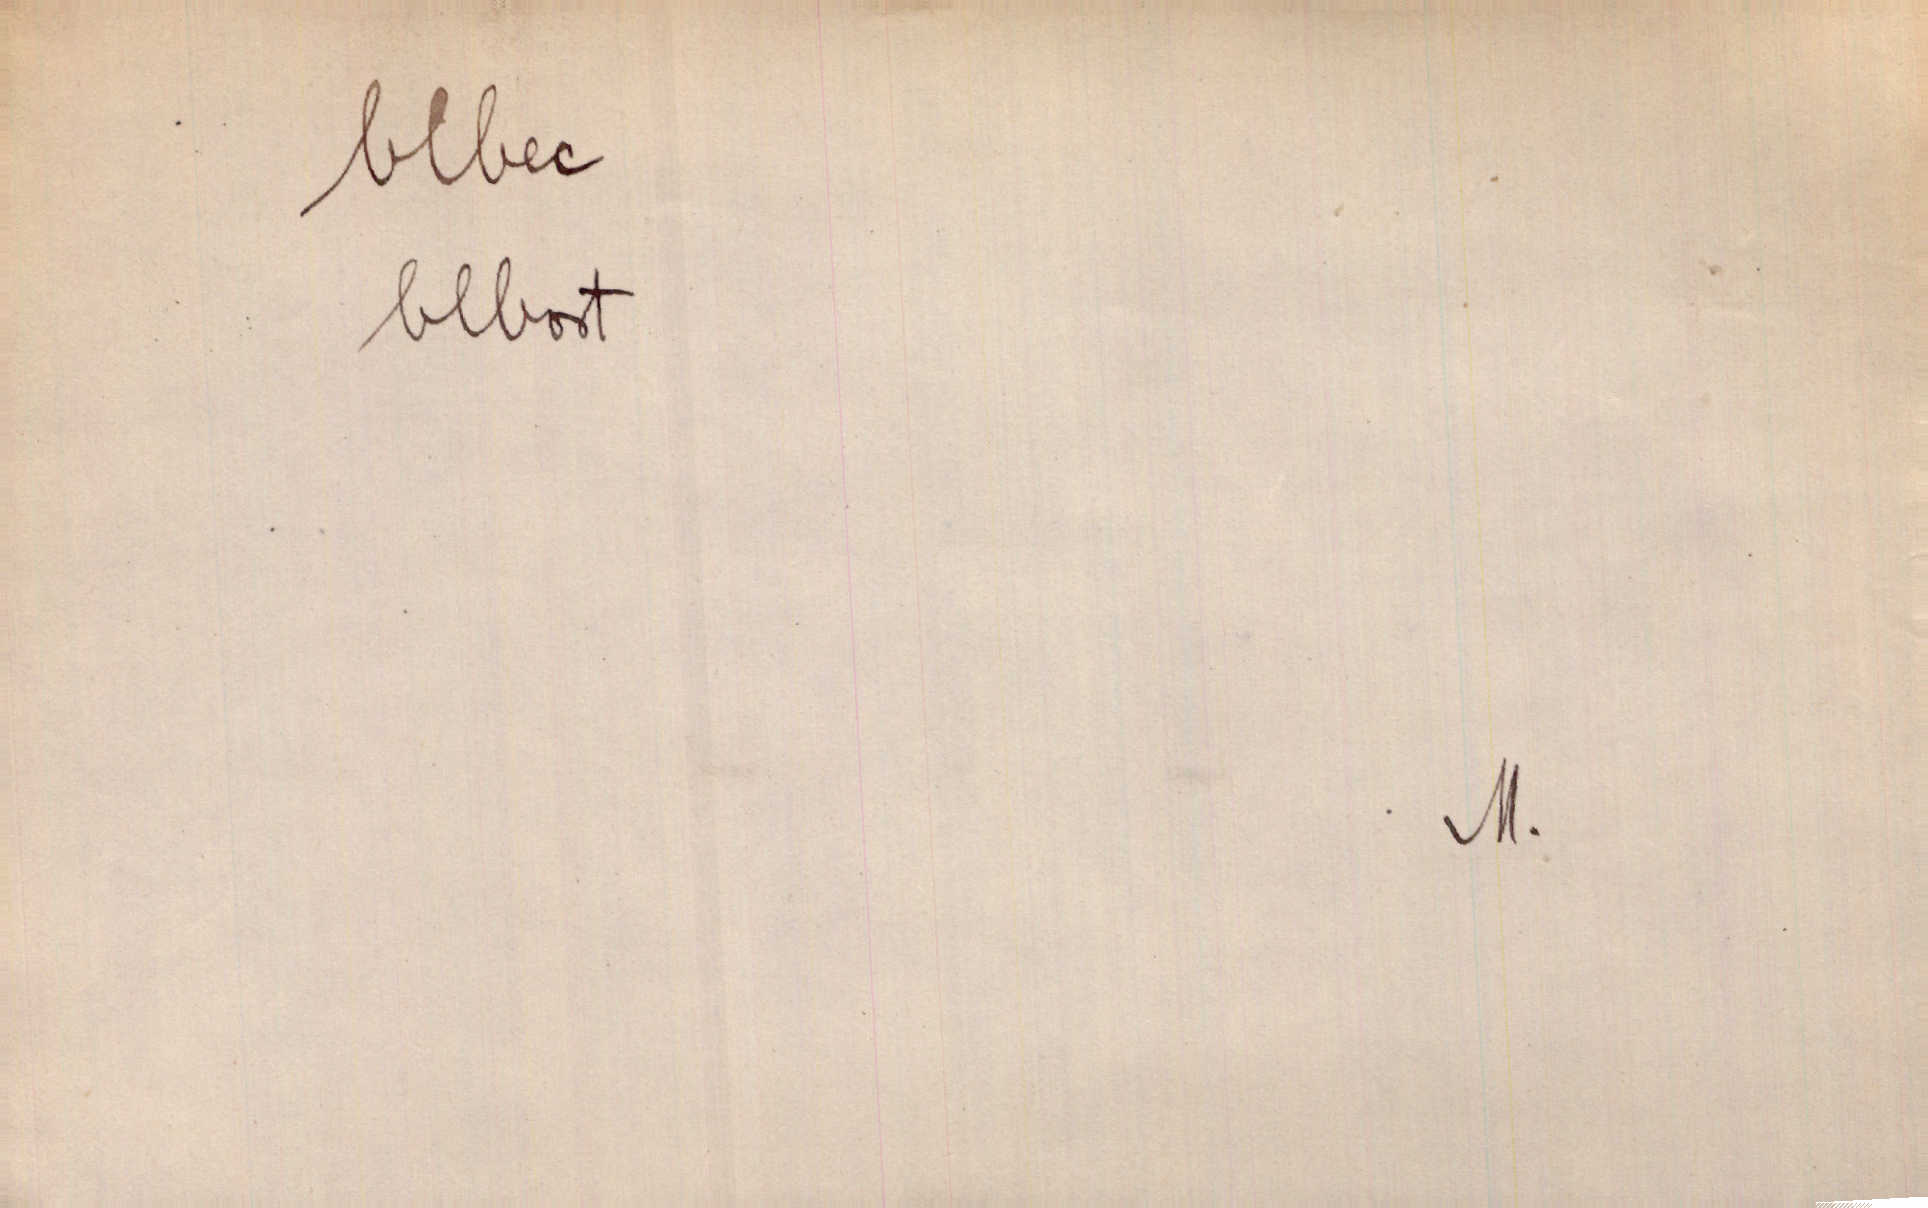 blbec
blbost
M.